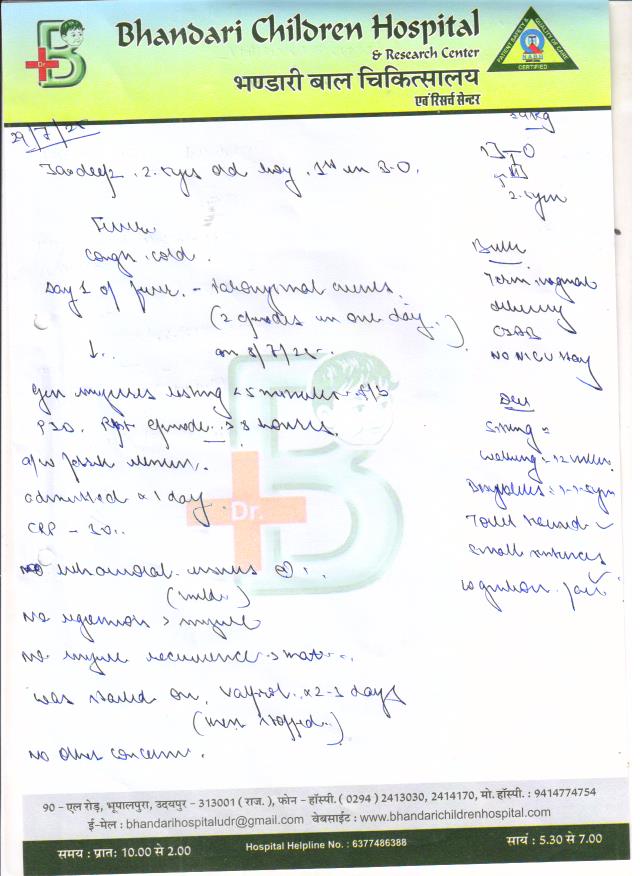 Bhandari Children Hospital
& Research Center
भण्डारी बाल चिकित्सालय
एवं रिसर्च सेन्टर
Dr. B
PATIENT SAFETY & QUALITY OF CARE
NABH
CERTIFIED
29/7/25
2.5yrs old boy, 1st in B-O.
2.5yrs
Fever
Cough cold.
Day 1 of fever. - paroxysmal events.
(2 episodes in one day.)
on 8/7/25.
↓
Gen seizures lasting <5 minutes f/b
PID. Rpt episode > 8 hours.
a/w febrile illness.
admitted x 1 day.
CRP - 30.
behavioral issues
(mild)
No regression > seizure
No seizure recurrence > that
was started on, Valprol x 2-1 days
(then stopped)
No other concern.
Birth
Term vaginal
delivery
CIAB
NO NICU stay
Dev
Sitting =
Walking - 12 mths.
Toilet trained ✓
small sentences
cognition. fair ✓
Dr.
90 - एल रोड़, भूपालपुरा, उदयपुर - 313001 ( राज. ), फोन - हॉस्पी. ( 0294 ) 2413030, 2414170, मो. हॉस्पी. : 9414774754
ई-मेल : bhandarihospitaludr@gmail.com वेबसाईट : www.bhandarichildrenhospital.com
समय : प्रातः 10.00 से 2.00 Hospital Helpline No. : 6377486388 सायं : 5.30 से 7.00